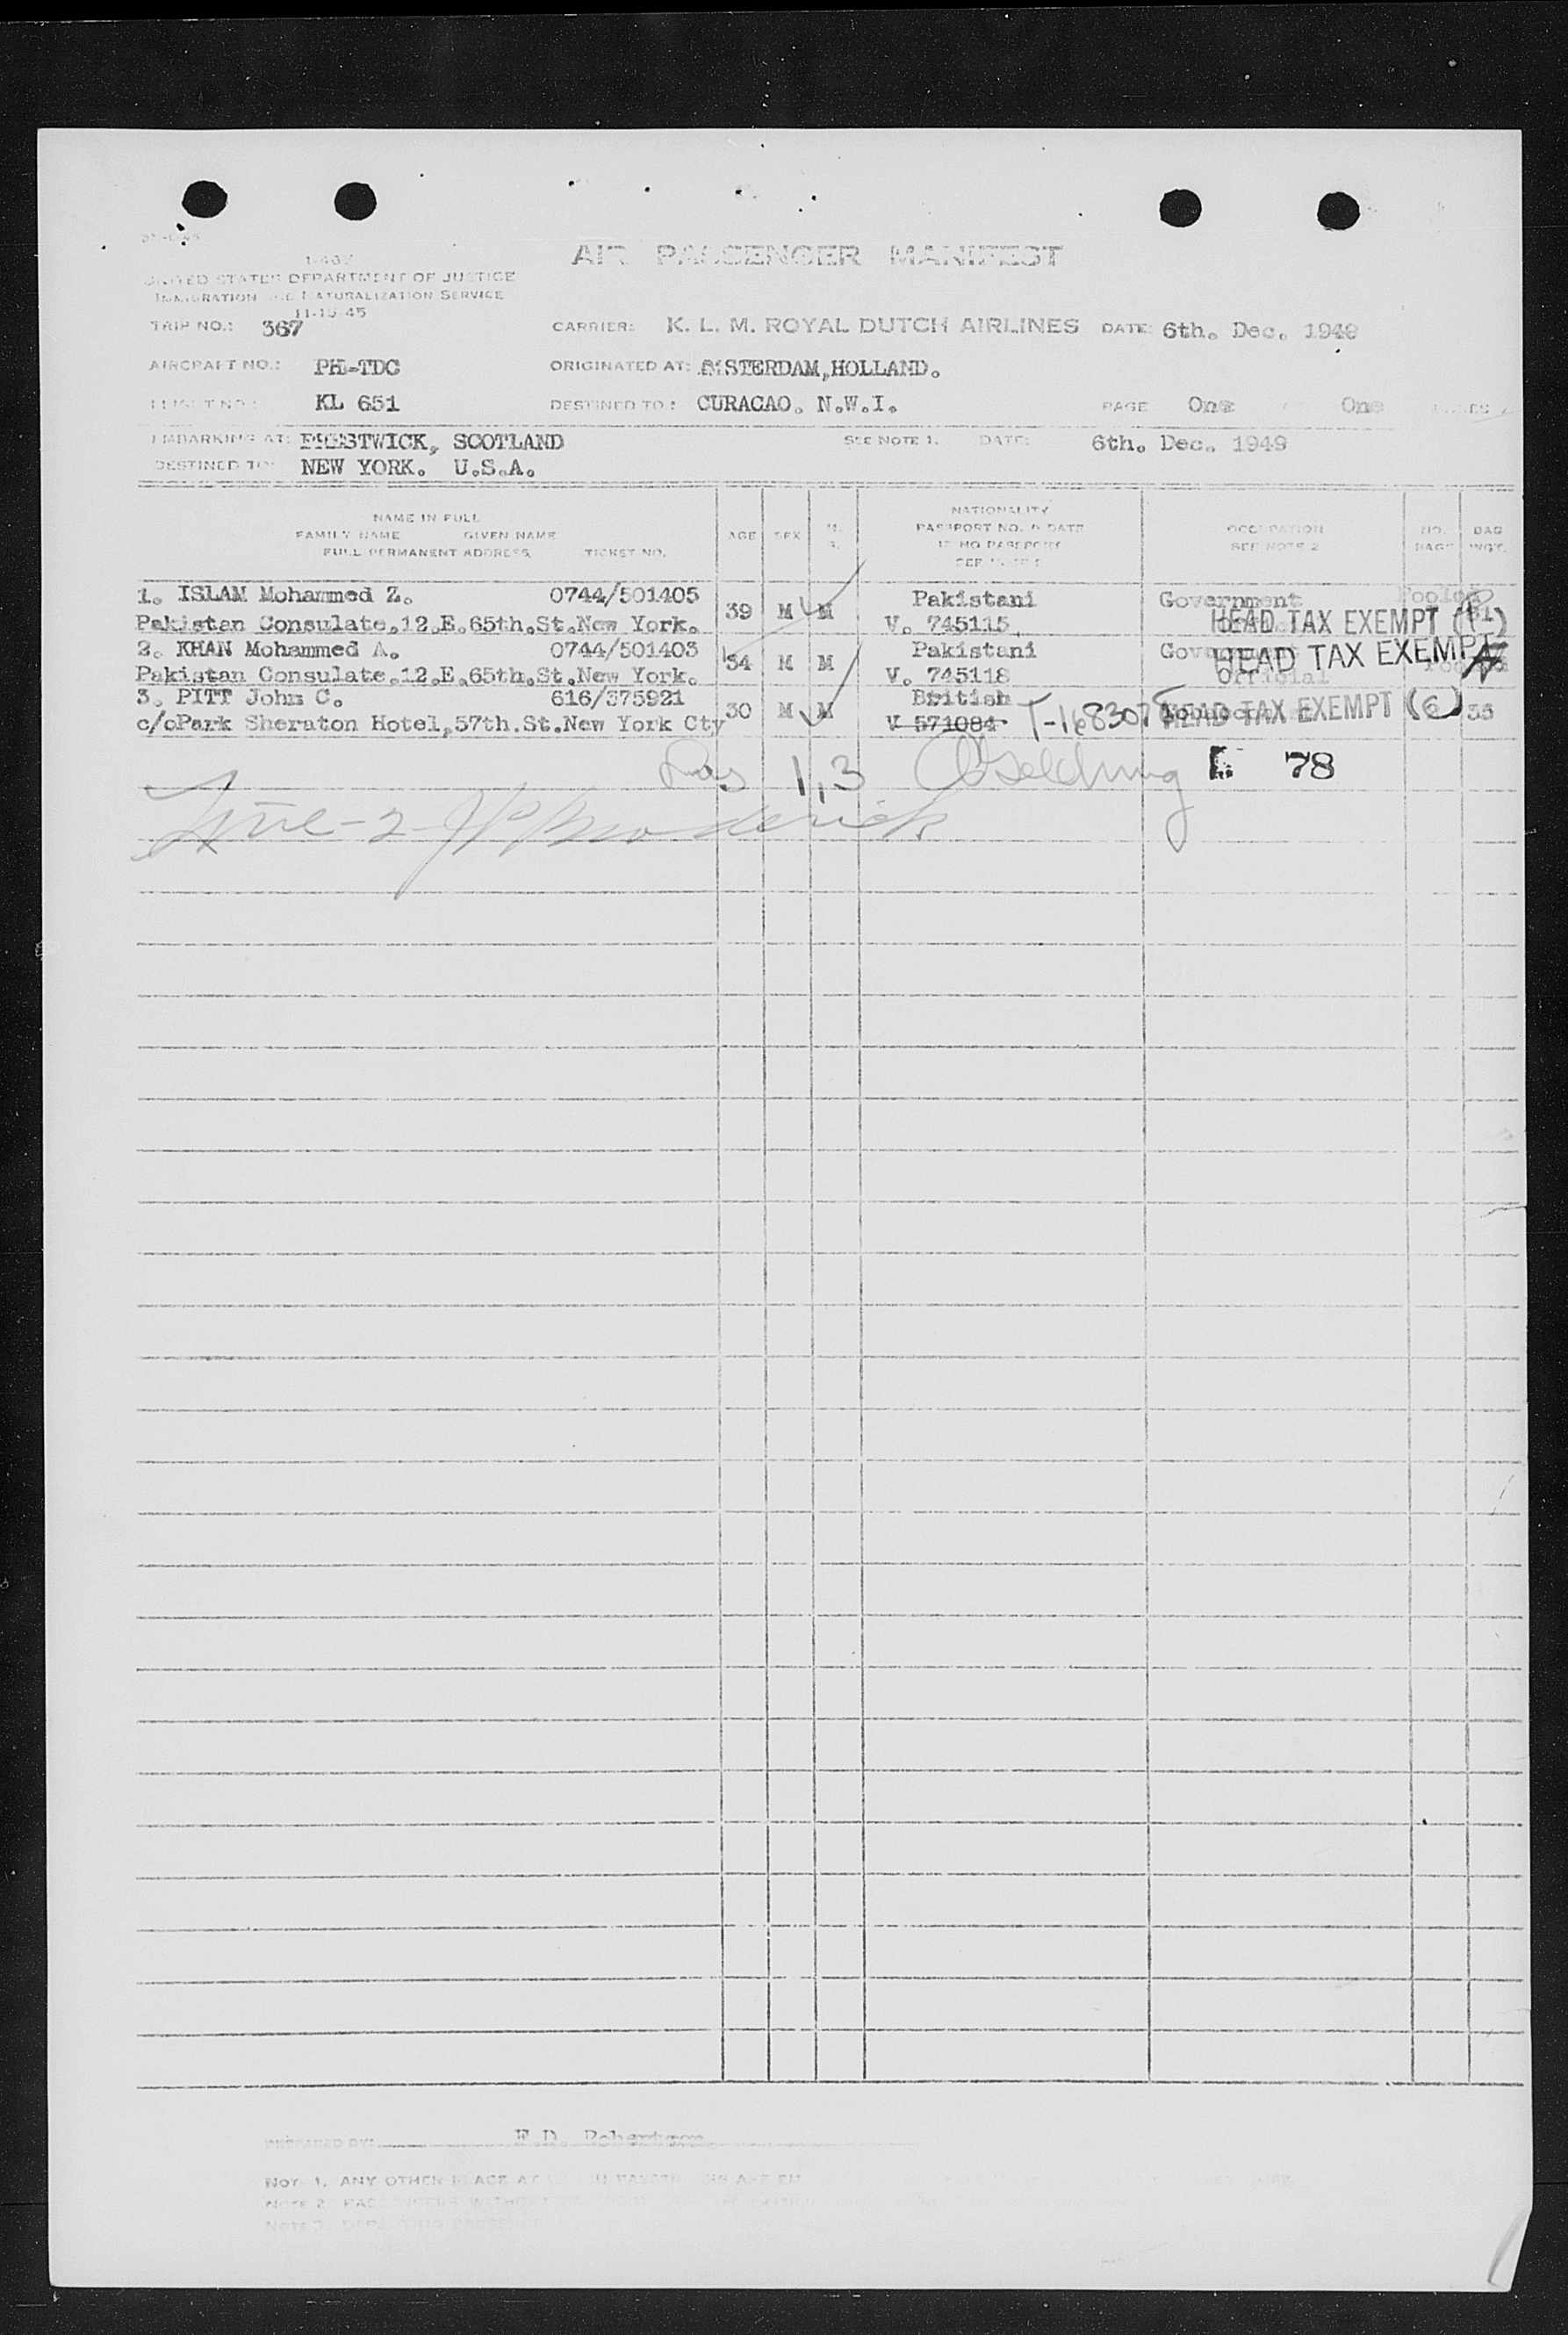 AIR PASSENGER MANIFEST
UNITED STATES DEPARTMENT OF JUSTICE
IMMIGRATION AND NATURALIZATION SERVICE
11-15-45
TRIP NO.: 367 CARRIER: K. L. M. ROYAL DUTCH AIRLINES DATE: 6th. Dec. 1949
AIRCRAFT NO.: PH-TDC ORIGINATED AT: AMSTERDAM, HOLLAND.
FLIGHT NO.: KL 651 DESTINED TO: CURACAO. N.W.I. PAGE One One
EMBARKING AT: PRESTWICK, SCOTLAND SEE NOTE 1. DATE: 6th. Dec. 1949
DESTINED TO: NEW YORK. U.S.A.
NAME IN FULL
FAMILY NAME GIVEN NAME
FULL PERMANENT ADDRESS, TICKET NO.
AGE SEX
NATIONALITY
PASSPORT NO. & DATE
IF NO PASSPORT
OCCUPATION
SEE NOTE 2
NO.
BAGS
BAG
WGT.
1. ISLAM Mohammed Z. 0744/501405 39 M M Pakistani Government
Pakistan Consulate,12,E,65th,St,New York. V. 745115 HEAD TAX EXEMPT
2. KHAN Mohammed A. 0744/501403 34 M M Pakistani Government
Pakistan Consulate,12,E,65th,St,New York. V. 745118 Official HEAD TAX EXEMPT
3. PITT John C. 616/375921 30 M M British
c/oPark Sheraton Hotel,57th.St.New York Cty V 571084 T-1683075 HEAD TAX EXEMPT 33
1,3 78
Line-2- Broderick
PREPARED BY: